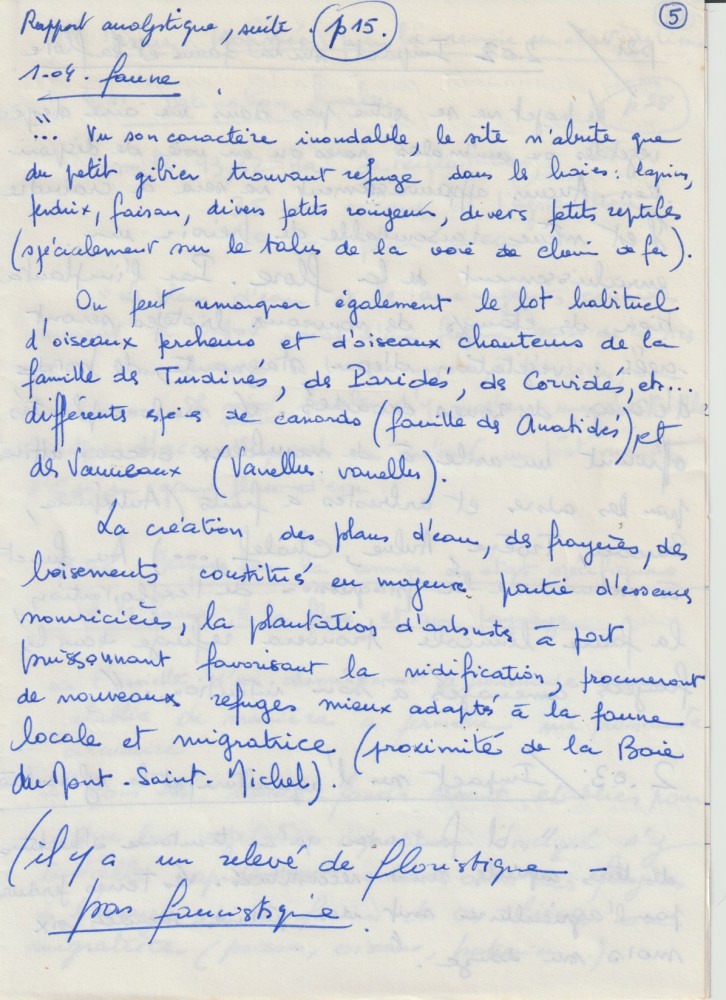 Rapport analytique, suite. p15.
5
1-04. faune
... Vu son caractère inondable, le site n'abrite que
du petit gibier trouvant refuge dans les haies: lapins,
perdrix, faisan, divers petits rongeurs, divers petits reptiles
(spécialement sur le talus de la voie de chemin de fer).
On peut remarquer également le lot habituel
d'oiseaux percheurs et d'oiseaux chanteurs de la
famille des Turdinés, des Paridés, des Corvidés, etc...
différents espèces de canards (famille des Anatidés), et
des Vanneaux (Vanellus vanellus).
La création des plans d'eau, des frayères, des
boisements constitués en majeure partie d'essences
nourricières, la plantation d'arbustes à port
buissonnant favorisant la nidification, procureront
de nouveaux refuges mieux adaptés à la faune
locale et migratrice (proximité de la Baie
du Mont-Saint-Michel).
(il y a un relevé de floristique -
pas faunistique.